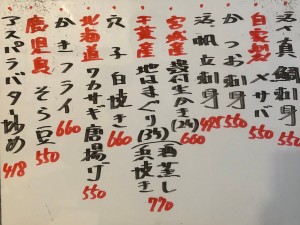 活〆真鯛刺身
自家製 〆サバ 550
かつお刺身 550
活帆立刺身 495
宮城産 殻付生かき(2ケ) 660
千葉産 地はまぐり(3ケ)酒蒸し 浜焼き 770
穴子白焼き 660
北海道 ワカサギ唐揚げ 550
かきフライ 660
鹿児島 そら豆 550
アスパラバター炒め 418